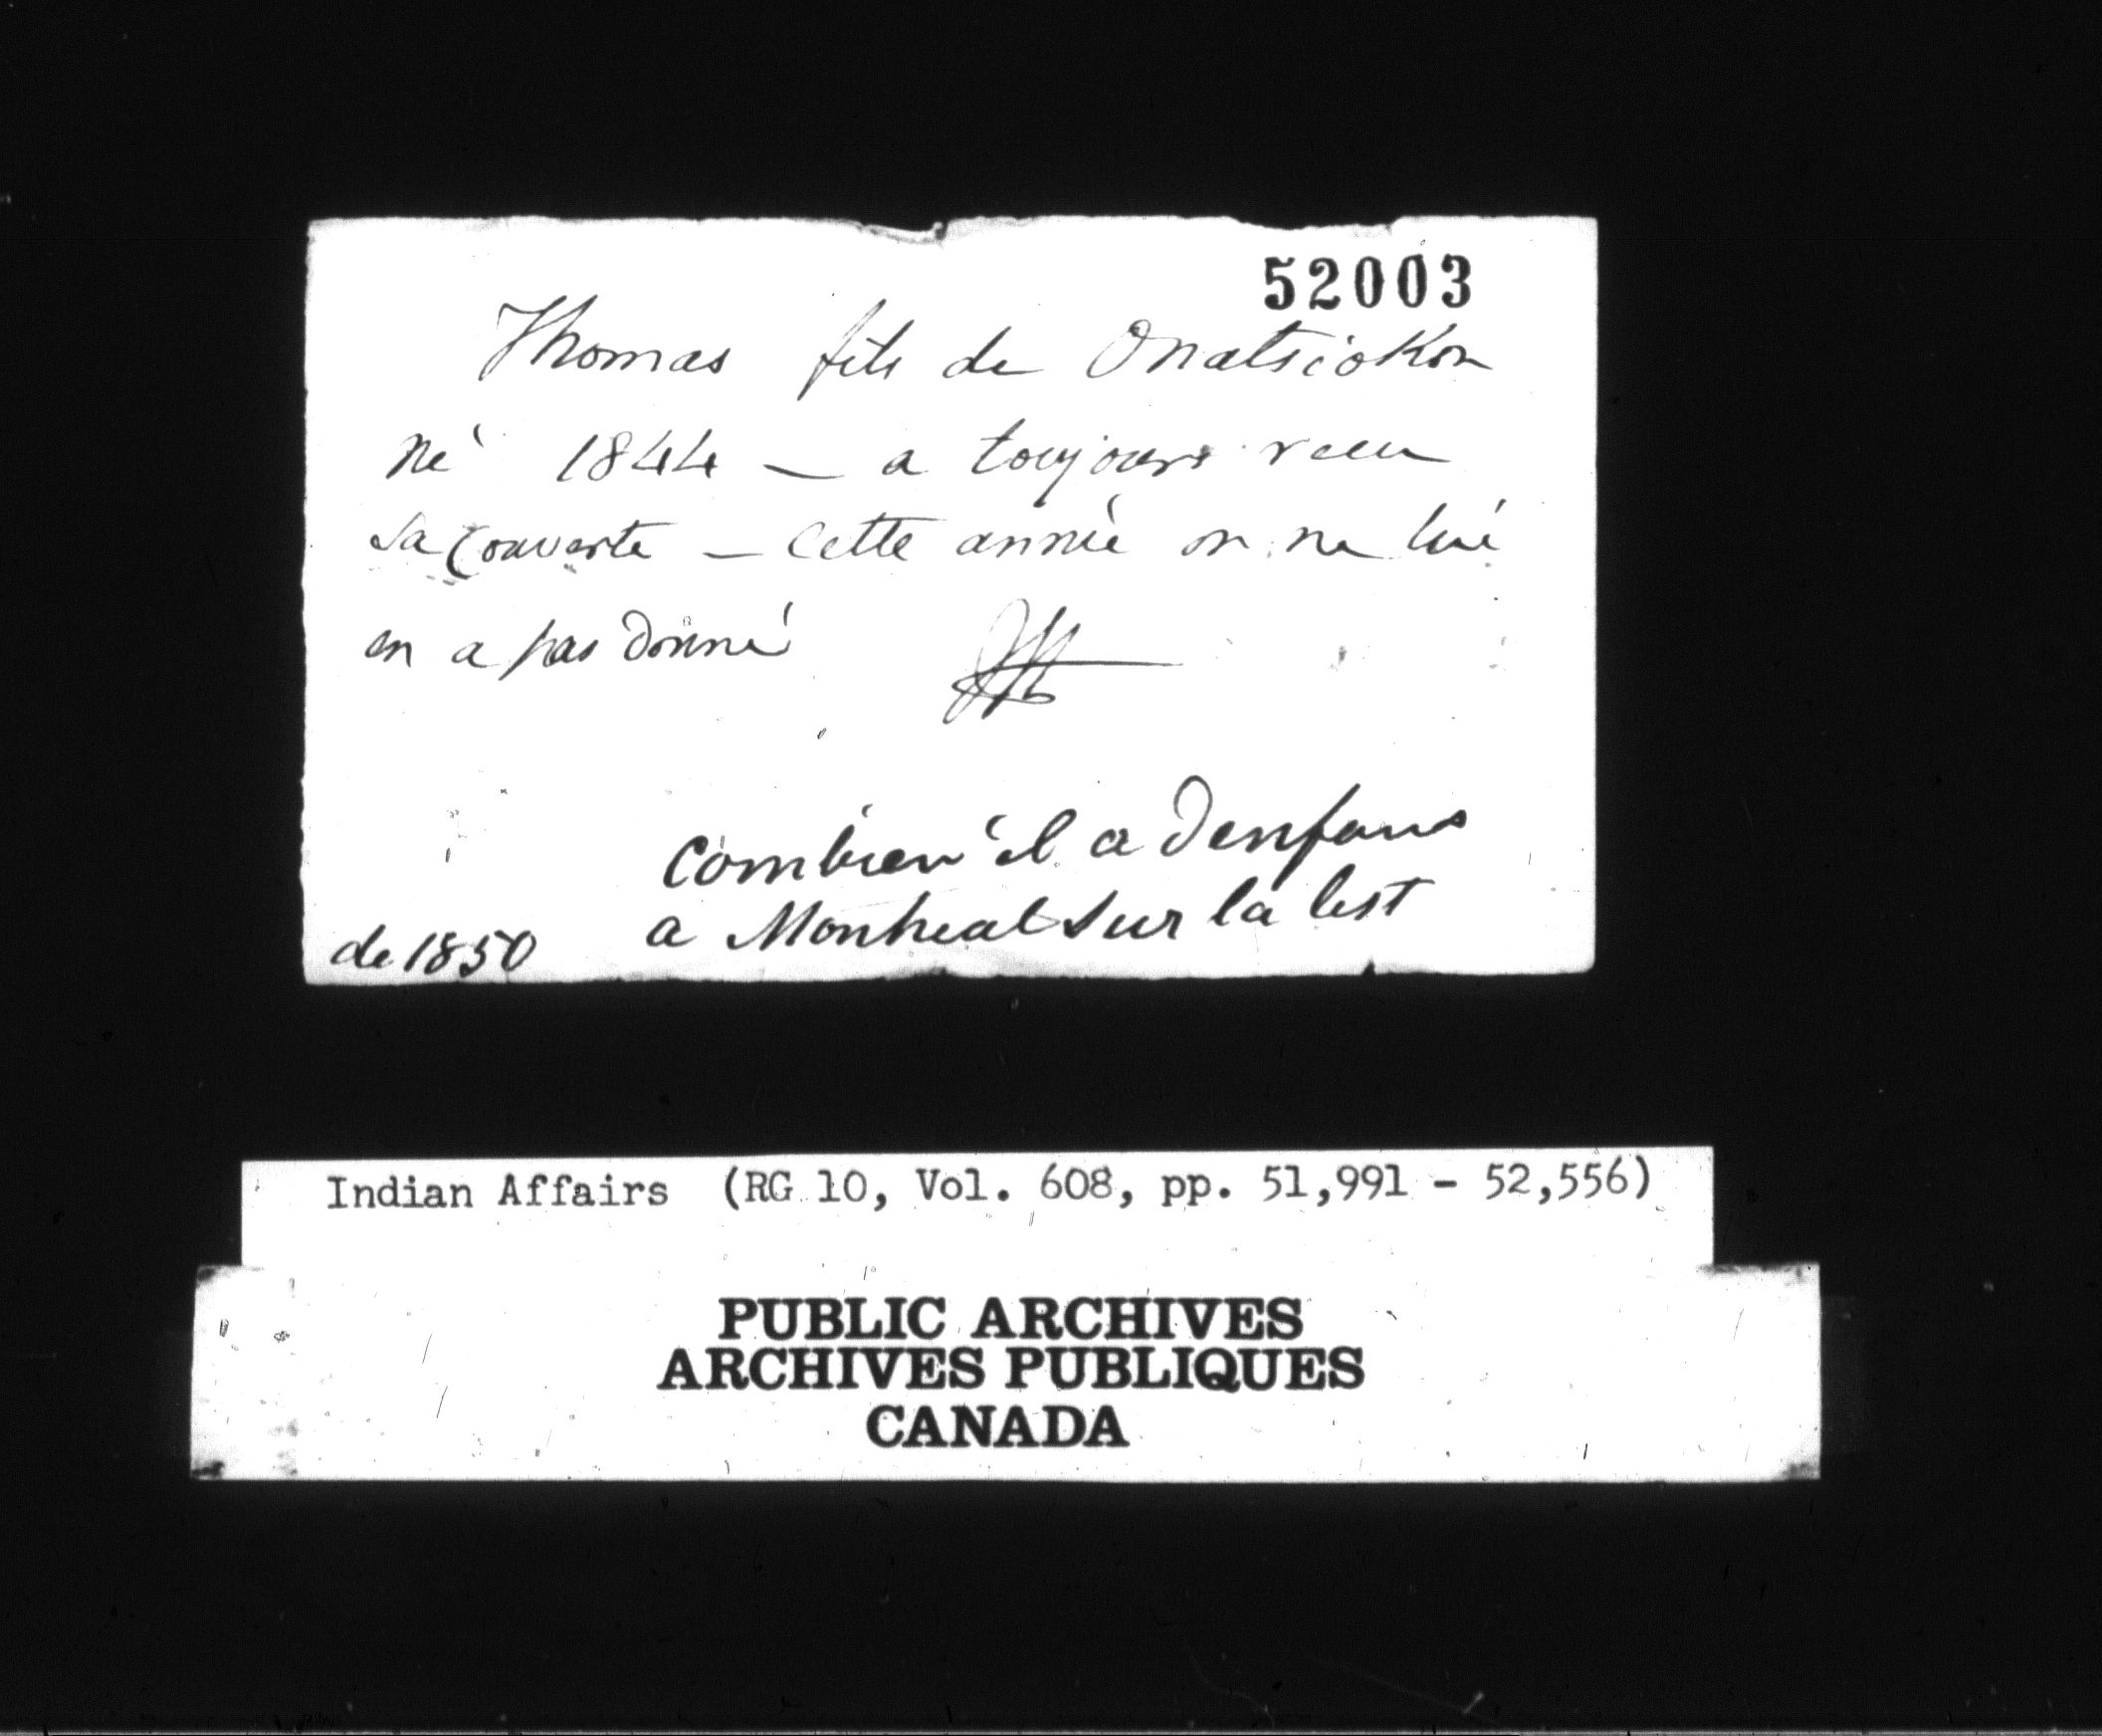 52003
Thomas fils de Onatsiokon
né 1844 — a toujours recu
sa couverte — Cette année on ne lui
en a pas donné
Combien il a denfans
a Montreal sur la list
de 1850
Indian Affairs (RG 10, Vol. 608, pp. 51,991 - 52,556)
PUBLIC ARCHIVES
ARCHIVES PUBLIQUES
CANADA